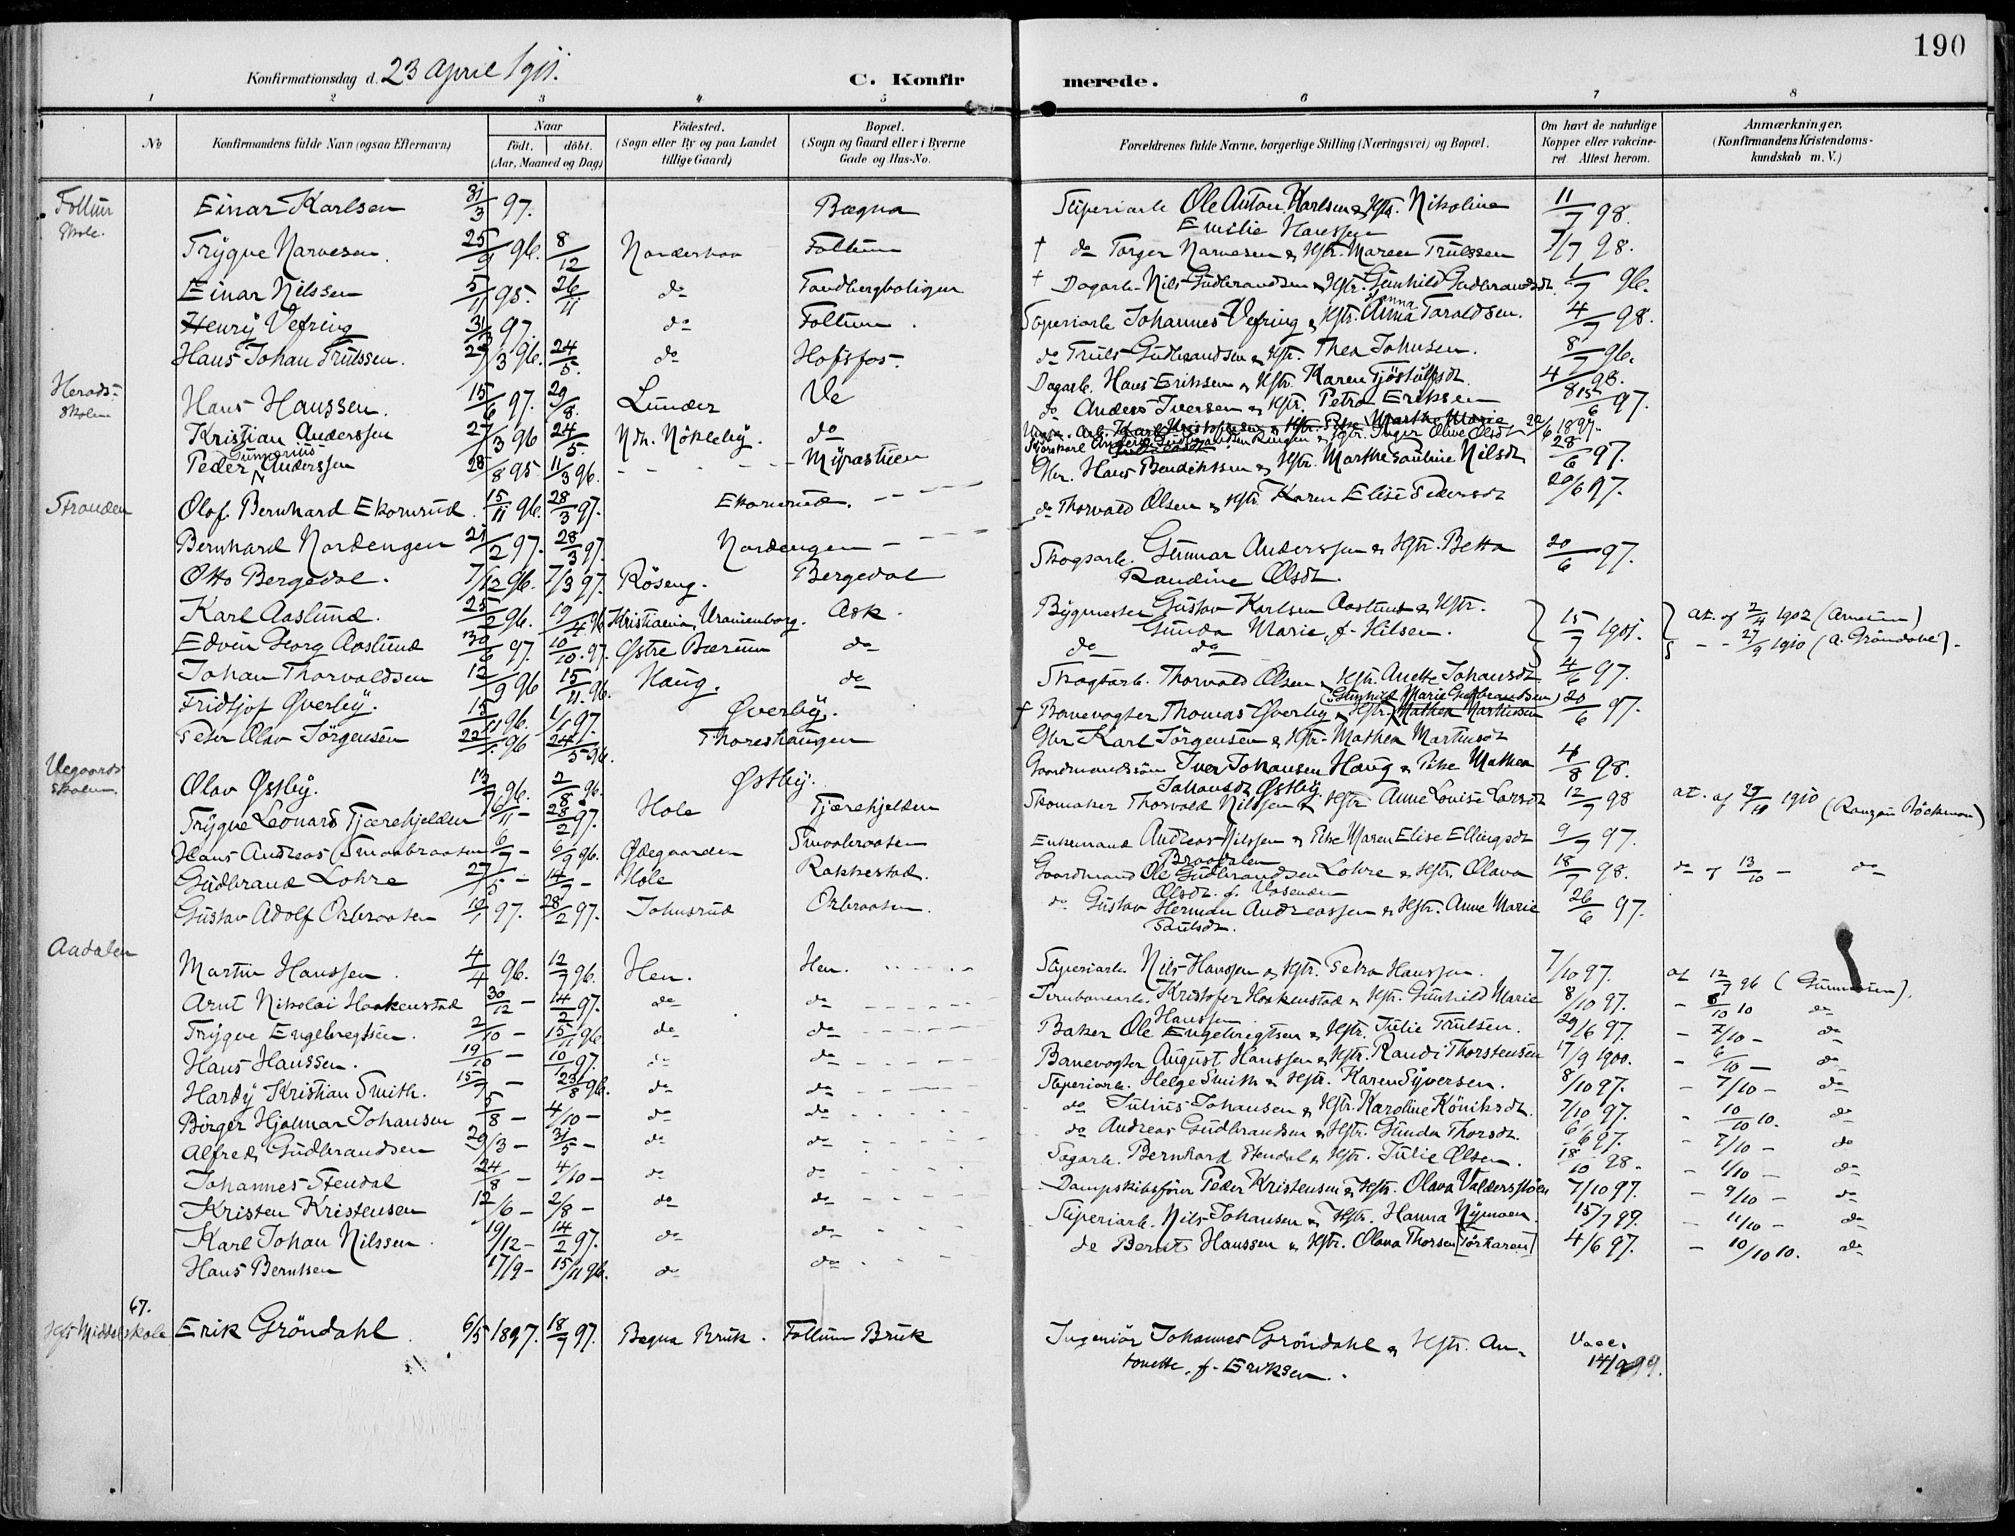 190
Konfirmationsdag d. 23 April 1911.
C. Konfirmerede.
1 2 3 4 5 6 7 8
No
Konfirmandens fulde Navn (ogsaa Efternavn)
Naar
født. døbt.
(Aar, Maaned og Dag)
Fødested.
(Sogn eller By og paa Landet
tillige Gaard)
Bopæl.
(Sogn og Gaard eller i Byerne
Gade og Hus-No.
Forældrenes fulde Navne, borgerlige Stilling (Næringsvei) og Bopæl.
Om havt de naturlige
Kopper eller vakcine-
ret Attest herom.
Anmærkninger,
(Konfirmandens Kristendoms-
kundskab m. V.)
Follum
Skole.
Einar Karlsen 31/3 97. Bægna Sliperiarb. Ole Anton Karlsen & Hstr. Nikoline 11/7 98.
Emilie Hanssen
Trygve Narvesen 25/9 96. 8/12 Norderhov Follum † do Torger Narvesen & Hstr. Maren Trulssen 7/7 98.
Einar Nilssen 5/11 95. 26/11 do Tandbergboligen † Dagarb. Nils Gudbrandsen & Hstr. Gunhild Gudbrandsdt. 1/7 96.
Henry Vefring 31/3 97. do Follum. Sliperiarb. Johannes Vefring & Hstr. Anna Taraldsen. 4/7 98.
Hans Johan Trulssen. 29/3 96. 24/5. do Hofsfos. do Truls Gudbrandsen & Hstr. Thea Johnsen. 8/7 96.
Herads-
skolen
Hans Hanssen. 15/6 97. 29/8. Lunder Ve Dagarb. Hans Eriksen & Hstr. Karen Tjøstulfsdt. 4/8 98.
Kristian Anderssen 27/3 96 24/5. Ndr. Nökleby. do do Anders Iversen & Hstr. Petra Eriksen 15/6 97.
Peder Gunnerius Anderssen 28/8 95 11/3 96. Myrastuen Hstr. Inger Oline Olsdt 22/6 1897.
Gbr. Hans Bendikssen & Hstr. Marthe Pauline Nilsdt 28/6 97.
Stranden
Olaf Bernhard Ekornrud 15/11 96. 28/3 97. Ekornrud. do Thorvald Olsen & Hstr. Karen Elise Pedersdt 20/6 97.
Bernhard Nordengen 21/2 97. 28/3 97. Nordengen
Otto Bergedal. 7/12 96. 7/3 97. Röseng. Bergedal Skogsarb. Gunnar Anderssen & Hstr. Betta 20/6 97.
Randine Olsdt.
Karl Aaslund. 25/2 96. 19/4 96 Kristiania, Uranienborg. Ask. Bygmester Gustav Karlsen Aaslund & Hstr. 15/7 1901. at. af 2/4 1902
Gunda Marie, f. Nilsen.
Edvin Georg Aaslund 30/6 97. 10/10. 97. Østre Bærum do do do 27/9 1910 (A. Gröndahl).
Johan Thorvaldsen 12/9 96 15/11. 96. Haug. do Skogsarb. Thorvald Olsen & Hstr. Anette Johansdt 4/6 97.
(Gunhild Marie Gulbrandsen)
Fridtjof Øverby. 15/11 96. 1/1 97. Øverby. † Banevogter Thomas Øverby & Hstr. Mathea Martinsen 20/6 97.
Peter Olav Jörgensen 22/1. 96 24/5 96. Thoreshaugen Gbr Karl Jörgensen & Hstr. Mathea Martinsdt
Vegaards
skolen.
Olav Østby. 13/7 96. 2/8 96. Østby. Gaardmandssön Iver Johansen Haug & Pike Mathea 4/8 98.
Johansdt Østby
Trygve Leonard Tjærehjelden 6/11 - 28/2 97. Hole Tjærehjelden Skomaker Thorvald Nilssen & Hstr Anne Louise Larsdt 12/7 98 at. af 29/10 1910
Hans Andreas Smaabraaten 6/7 - 6/9 96. Ødegaarden Smaabraaten Enkemand Andreas Nilssen & Pike Maren Elise Ellingsdt 9/7 97.
Braadalen
Gudbrand Lohre 27/5 - 14/7 - Hole Rakkestad. Gaardmand Ole Gudbrandsen Lohre & Hstr. Olava 18/7 98. do af 13/10 - do
Olsdt. f. Vaseenden
Gustav Adolf Orbraaten 12/1 97. 28/2 97. Johnsrud Orbraaten. do Gustav Herman Andreassen & Hstr. Anne Marie 26/6 97.
Paulsdt.
Aadalen
Martin Hanssen. 4/4 96. 12/7 96. Hen. Hen. Sliperiarb. Nils Hanssen & Hstr. Petra Hanssen. 7/10 97. at 12/7 96
Arnt Nikolai Haakenstad 30/12 - 14/2 97. do do Jernbanearb. Kristofer Haakenstad & Hstr. Gunhild Marie 8/10 97. - 8/10 10 do
Hanssen
Trygve Engebregtsen. 2/10 - 15/11 96. do do Baker Ole Engebregtsen & Hstr. Julie Trulsen. 29/6 97. - 7/10 - do
Hans Hanssen. 19/10 - 10/1 97. do do Banevogter August Hanssen & Hstr. Randi Thorstensen 17/9 1900. - 6/10 - do
Hardy Kristian Smith. 15/7 - 23/8 96. do do Sliperiarb. Helge Smith & Hstr. Karen Syversen. 8/10 97. - 7/10 - do
Börger Hjalmar Johansen 5/8 - 4/10 - do do do Julius Johansen & Hstr. Karoline Köniksdt. 7/10 97. - 10/10 10. do
Alfred Gudbrandsen 29/3 - 31/5 - do do do Andreas Gudbrandsen & Hstr. Gunda Thorsdt. 6/6 97. - 7/10 - do
Johannes Stendal 24/8 - 4/10 - do do Sagarb. Bernhard Stendal & Hstr. Julie Olsen. 18/10 98. - 1/10 - do
Kristen Kristensen 12/6 - 2/8 - do do Dampskibsfører Peder Kristensen & Hstr. Olava Valdersstöen 7/10 97. - 9/10 - do
Karl Johan Nilssen. 19/12 - 14/2 97. do do Sliperiarb. Nils Johansen & Hstr. Hanna Nymoen. 15/7 99. - 11/10 - do
Hans Berntsen 17/9 - 15/11 96. do do do Bernt Hanssen & Hstr. Olava Thorsen 4/6 97. - 10/10 10. do
67.
Middelskole Erik Gröndahl. 6/5 1897. 18/7 97. Bægna Bruk. Follum Bruk Ingeniör Johannes Gröndahl & Hstr. An-
tonette, f. Eriksen.
14/9 99.